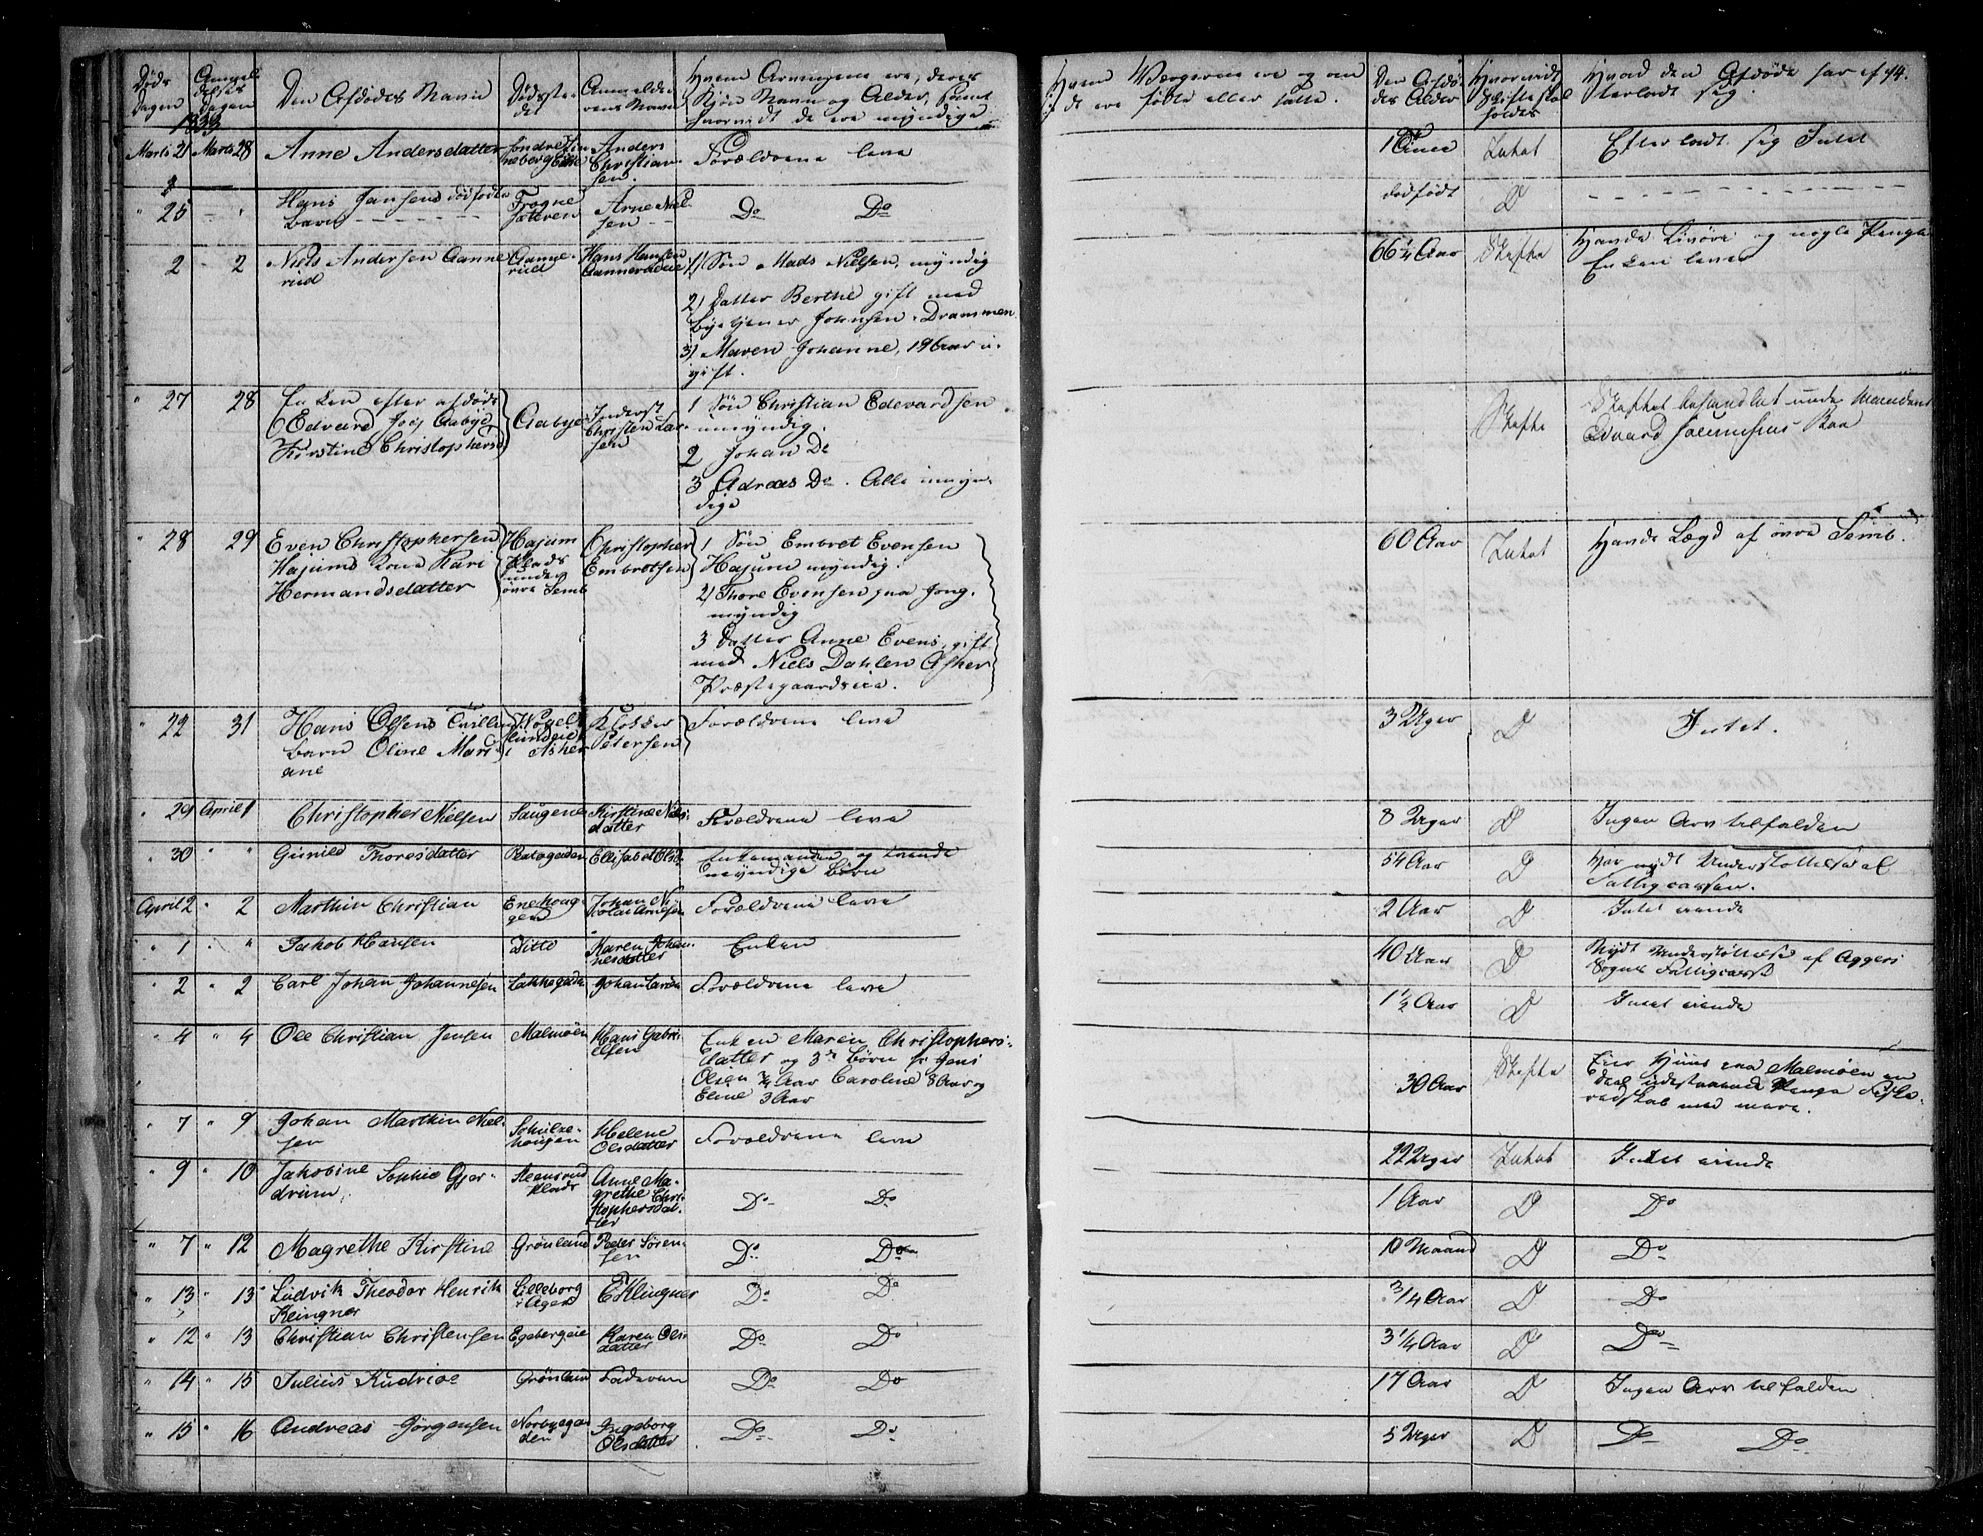 Døds Dagen
Anmeldelses Dagen
Den Afdødes Navn
Dødsstedet
Anmelderens Navn
Hvem Arvingerne ere, deres
Kjøn Navn og Alder, samt
hvorvidt de ere myndige
Hvem Værgerne ere og om
de ere fødte eller satte.
Den Afdødes Alder
Hvorvidt Skifte skal holdes
Hvad den Afdøde har ef
terladt sig
14.
1833
Marts 21 Marts 28 Anne Andersdatter Anders Christiansen. Forældrene leve 1 Intet Efterladt sig Intet
" 25 - " Hans Jansens dødfødte Barn Frognesæteren Arne Nielsen Do Do dødfødt D
" 2 - 2 Niels Andersen Aannerud Aannerud Hans Hansen Aannerudeie
1) Søn Mads Nielsen, myndig
2) Datter Berthe gift med
Bytjener Johnsen, Drammen
3) Maren Johanne, 19 Aar u-
gift.
66 1/4 Aar Skifte
og nogle Penge
Enken lever
" 27 28 Enken efter afdøde
Edvard Joes Aabye
Kirstine Christophersd
Aabye
Inderst Christen Larsen
1 Søn Christian Edevardsen
umyndig.
2 Johan Do
3 Adreas Do. Alle umyn-
dige
Skifte
Skiftet behandlet under Mandens
Edvard
" 28 29 Even Christophersen
Hajums Kone Kari
Hermandsdatter
Hajum Plads under øvre Semb
Christopher Embretsen
1 Søn Embret Evensen
Hajum myndig.
2) Thore Evensen paa Jong.
myndig
3 Datter Anne Evens, gift
med Niels Dahlen Asker
Præstegaardseie.
60 Aar Intet Havde Lægd af øvre Semb.
" 22 31 Hans Olsens Tvilling
barn Oline Mari-
ane
i Asker
Klokker Petersen
Forældrene leve
3 Uger D Intet.
" 29 April 1 Christopher Nielsen Saugene Kirstine Nielsdatter Forældrene leve 8 Uger D Ingen Arv tilfalden
" 30 " " Gunild Thoresdatter Ellisabet Olsd Enkemanden og
myndige Børn
54 Aar D Har nydt Understøttelse af
Fattigcassen.
April 2 " 2 Marthin Christian Enehaugen Johan Nicolai Arnesen Forældrene leve 2 Aar D Intet eiende
" 1 " " Jakob Hansen Ditto Karen Johannesdatter Enken 40 Aar D Nydt Understøttelse af Aggers
Sogns Fattigcasse
" 2 " 2 Carl Johan Johannesen Lakkegaden Johan Larsen Forældrene leve 1 1/2 Aar D Intet eiende
" 4 " 4 Ole Christian Jensen Malmøen Hans Gabrielsen
Enken Maren Christophers-
datter og 3de Børn Jens
Olsen 3/4 Aar Caroline 8 Aar og
Eline 3 Aar
30 Aar Skifte
Eier Huus paa Malmøen en
Deel udestaaende Penge Fiske-
redskab med mere.
" 7 " 9 Johan Marthin Niel-
sen
Schulzehaugen Helene Olsdatter Forældrene leve 22 Uger Intet Intet eiende
" 9 " 10 Jakobine Sophie Gjer-
drum,
Anne Magrethe Christophersdatter Do Do 1 Aar D Do
" 7 " 12 Magrethe Kirstine Grønland Peder Sørensen Do Do 10 Maand D Do
" 13 " 13 Ludvik Theodor Henrik
Klingner
Lilleborg i Ager E Klingner Do Do 3/4 Aar D Do
" 12 " 13 Christian Christensen Egebergeie Karen Olsdatter Do Do 3 1/4 Aar D Do
" 14 " 15 Julius Kudrioe Grønland Faderen Do Do 17 Aar D Ingen Arv tilfalden
" 15 " 16 Andreas Jørgensen Norbygaden Ingeborg Olsdatter Do Do 5 Uger D Do Do